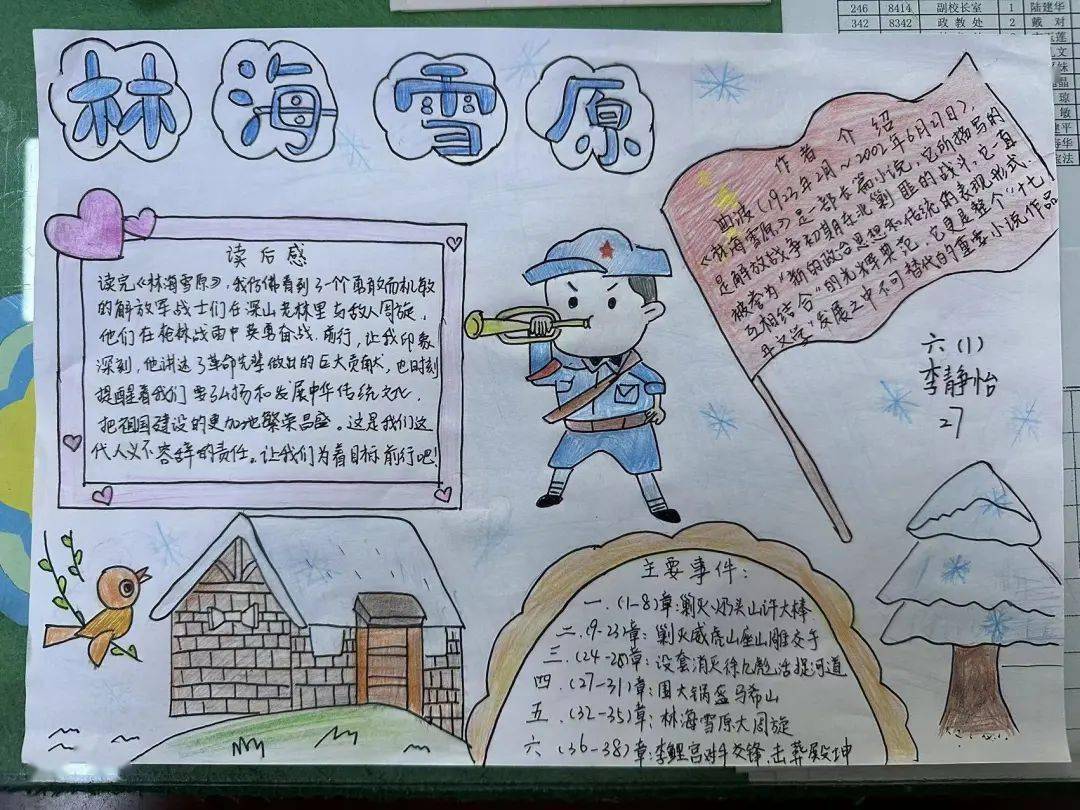 林海雪原
读后感
读完《林海雪原》,我仿佛看到了一个勇敢而机敏
的解放军战士们在深山老林里与敌人周旋,
他们在枪林战雨中英勇奋战,前行,让我印象
深刻,他讲述了革命先辈做出的巨大贡献,也时刻
提醒着我们要弘扬和发展中华传统文化,
把祖国建设的更加地繁荣昌盛。这是我们这
代人义不容辞的责任。让我们为着目标前行吧!
作者介绍
曲波(1923年2月~2002年6月27日),
《林海雪原》是一部长篇小说,它所描写的
是解放战争初期东北剿匪的战斗,它一直
被誉为“新的政治思想和传统的表现形式
互相结合”的光辉典范,它更是整个“十七
年文学”发展之中不可替代的重要小说作品
六(1)
李静怡
27
主要事件:
一.(1-8)章:剿灭奶头山许大棒
二.(9-23)章:剿灭威虎山座山雕交于
三.(24-28)章:设套消灭徐九彪活捉河道
四.(27-31)章:围大锅盔马希山
五.(32-35)章:林海雪原大周旋
六.(36-38)章:李鲤宫对手交锋,击葬殿坤
246 8414 副校长室 1 陆建华
342 8342 政教处 2 戴对